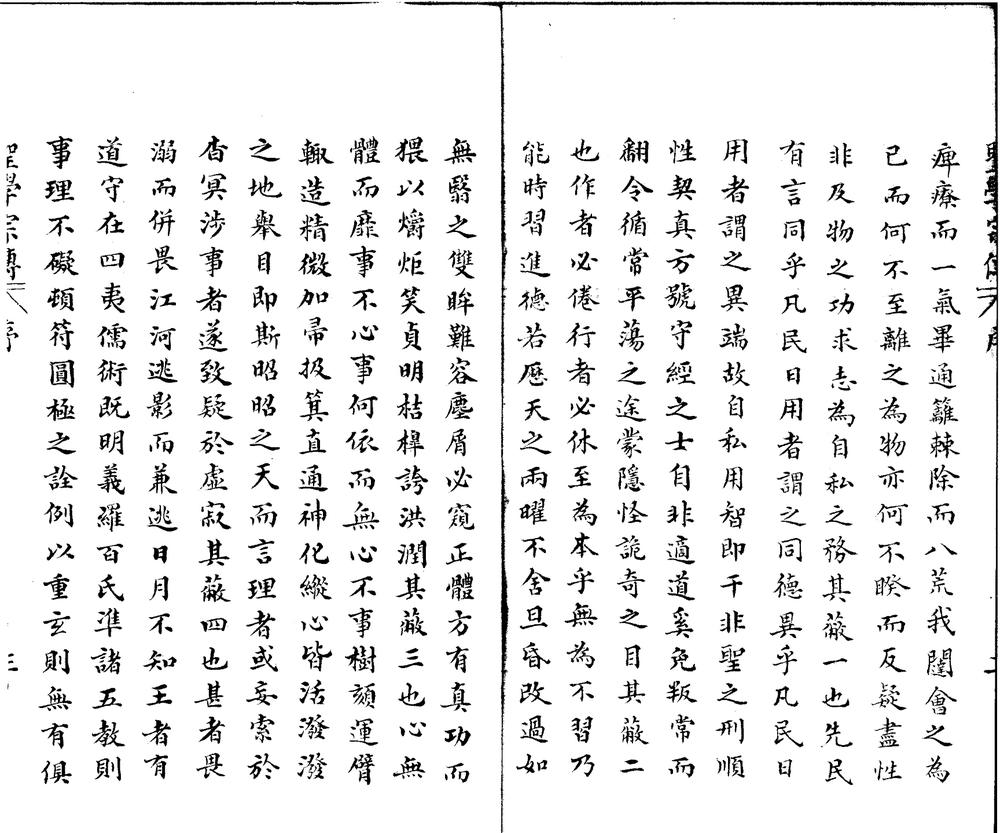 痺療而一氣畢通籬棘除而八荒我闥會之為
已而何不至離之為物亦何不睽而反疑盡性
非及物之功求志為自私之務其蔽一也先民
有言同乎凡民日用者謂之同德異乎凡民日
用者謂之異端故自私用智即干非聖之刑順
性契真方號守經之士自非適道奚免叛常而
翻令循常平蕩之途蒙隱怪詭奇之目其蔽二
也作者必倦行者必休至為本乎無為不習乃
能時習進德若歷天之兩曜不舍旦昏改過如
無翳之雙眸難容塵屑必窺正體方有真功而
猥以爝炬笑貞明桔槔誇洪潤其蔽三也心無
體而靡事不心事何依而無心不事樹頦運臂
輒造精微加帚扱箕直通神化縱心皆活潑潑
之地舉目即斯昭昭之天而言理者或妄索於
杳冥涉事者遂致疑於虛寂其蔽四也甚者畏
溺而併畏江河逃影而兼逃日月不知王者有
道守在四夷儒術既明義羅百氏準諸五教則
事理不礙頓符圓極之詮例以重玄則無有俱
聖學宗傳 序 三